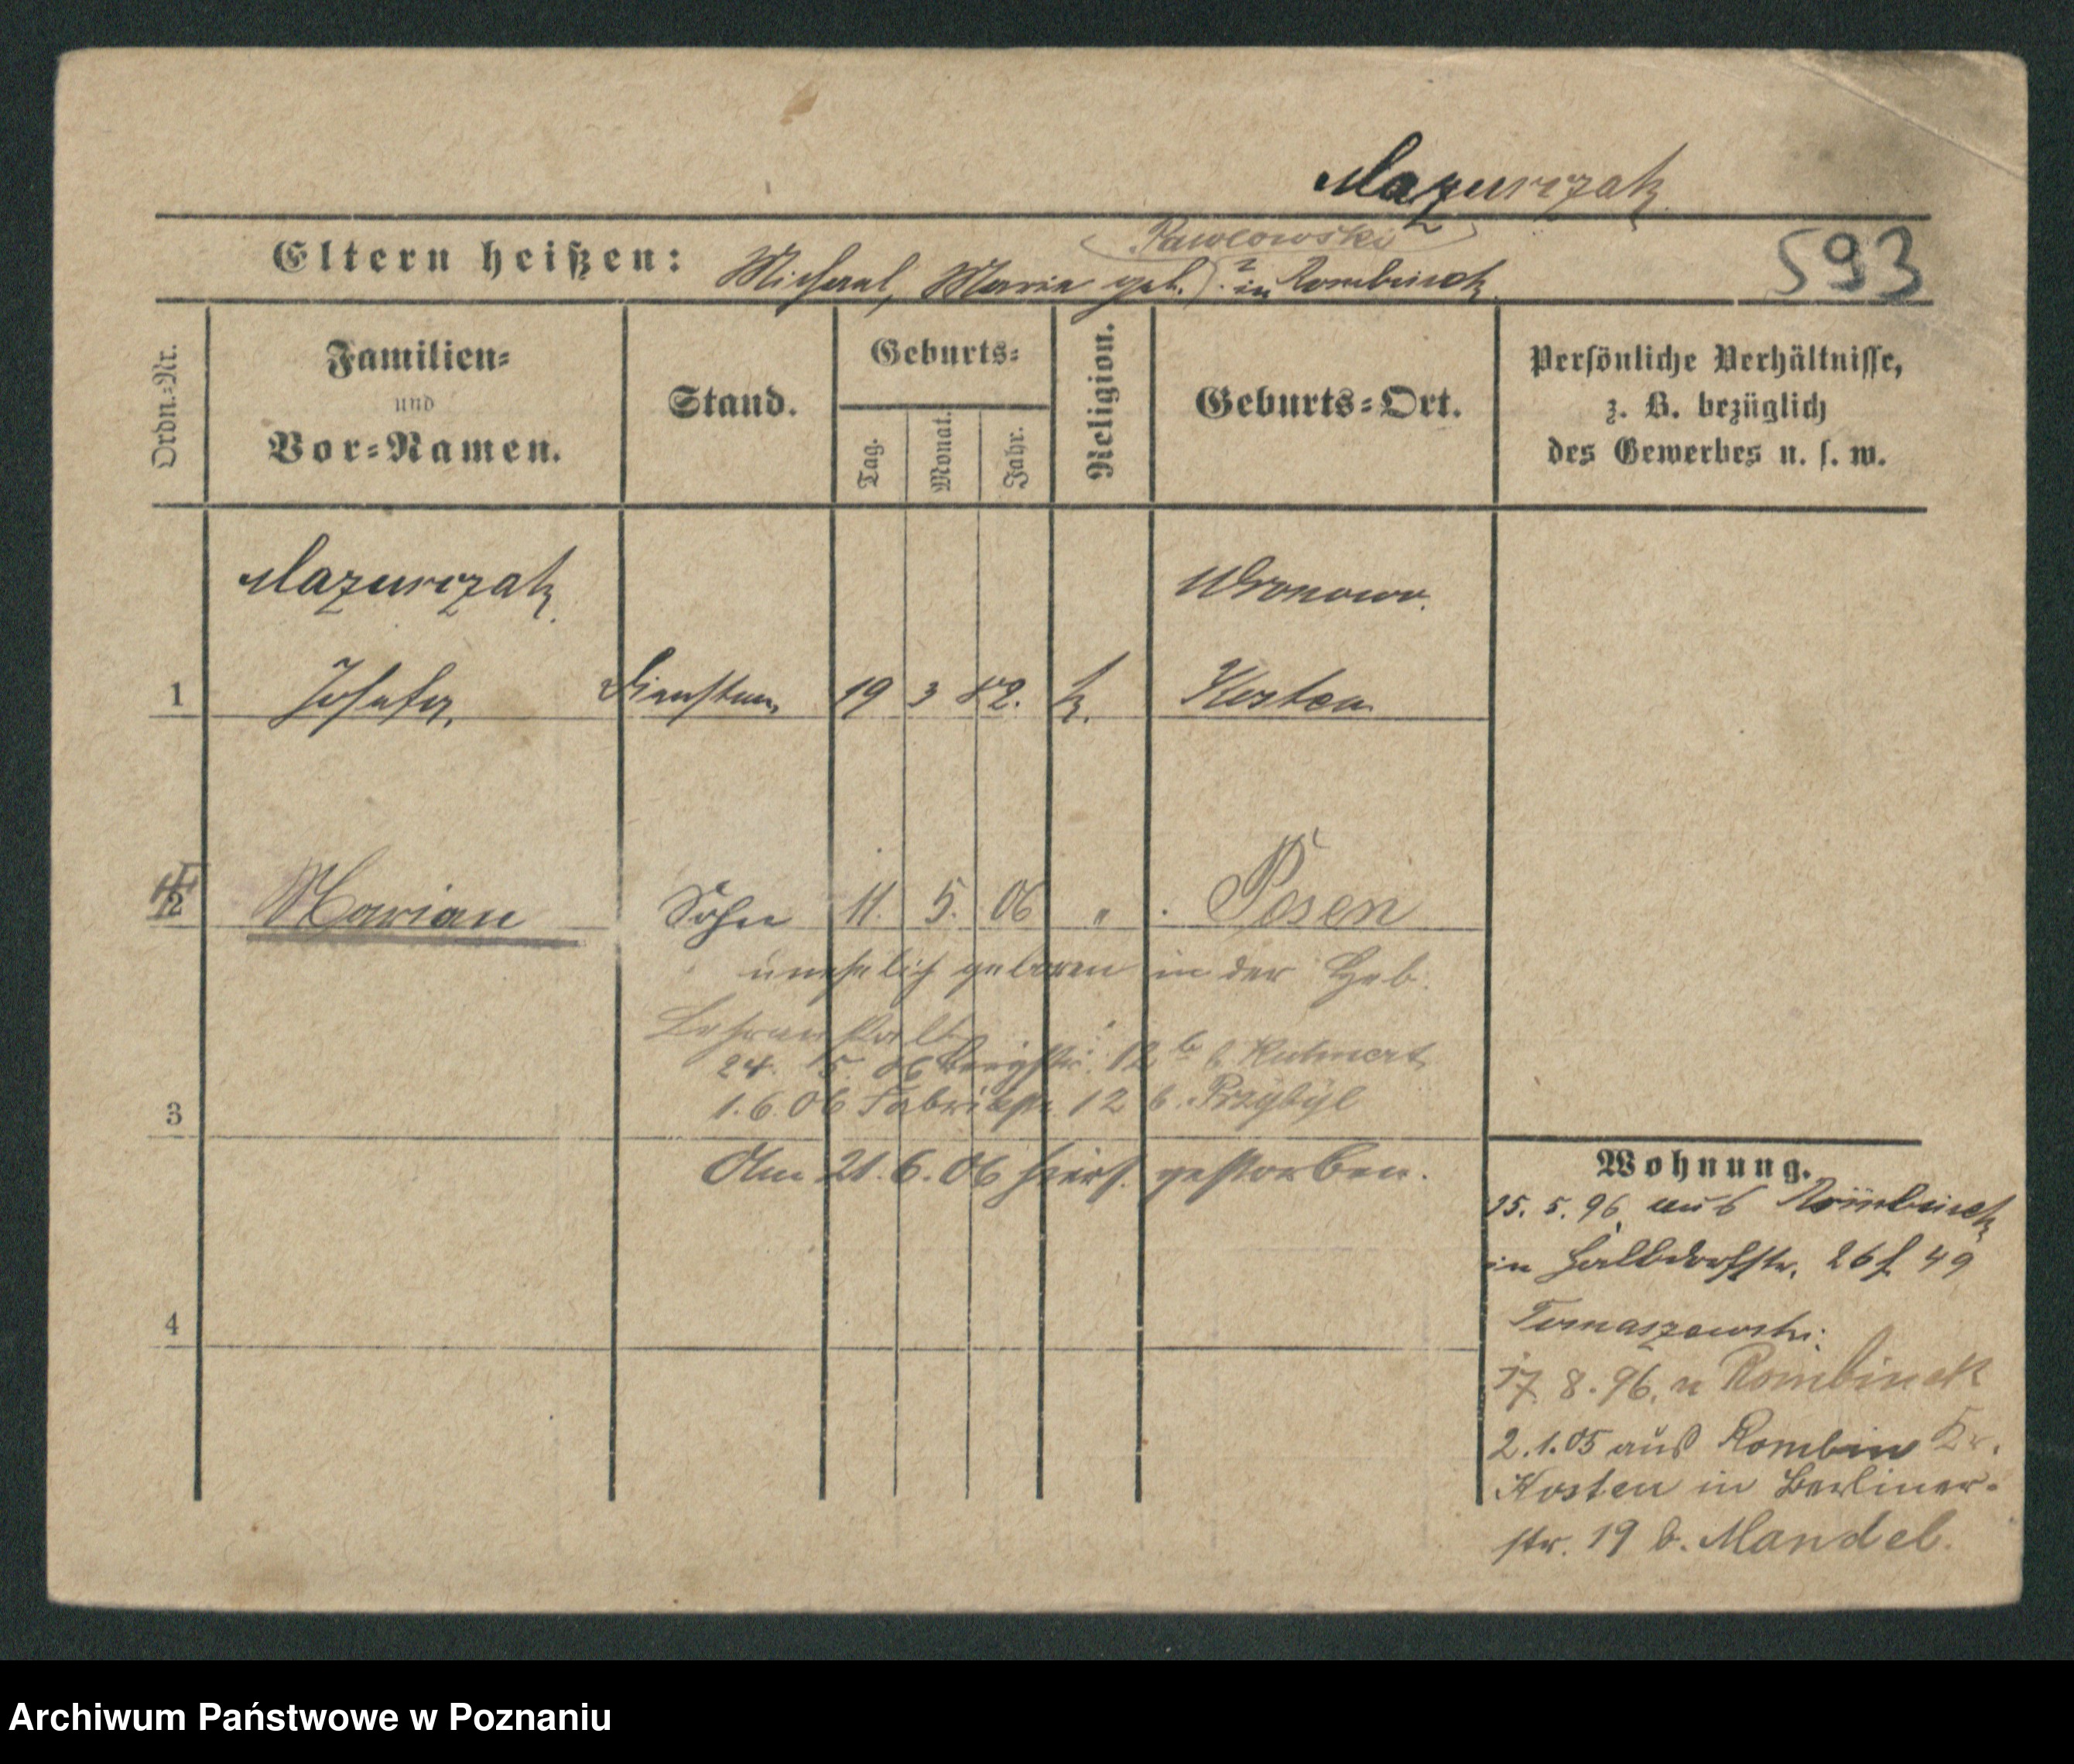 Mazurczak
Eltern heißen: Michael, Maria geb. (Pawlowski) ? in Rombinek
593
Ordn.=Nr.
Familien=
und
Vor=Namen.
Stand.
Geburts=
Tag.
Monat.
Jahr.
Religion.
Geburts=Ort.
Persönliche Verhältnisse,
z. B. bezüglich
des Gewerbes u. s. w.
Mazurczak Wronowo.
1 Josefa, 19 3 82. k. Kosten
2 Marian Sohn 11. 5. 06 " Posen
unehelich geboren in der Heb.
Lehranstalt
24. 5. 06 Bergstr. 12b b. Kuhnert
3 1.6.06 Fabrikstr. 12 b. Przybyl
Am 21.6.06 hiers. gestorben.
4
Wohnung.
15. 5. 96 aus Rombinek
in Halbdorfstr. 26 f 49
Tomaszewski.
17. 8. 96. n Rombinek
2.1.05 aus Rombin Kr.
Kosten in Berliner-
str. 19 b. Mandel.
Archiwum Państwowe w Poznaniu